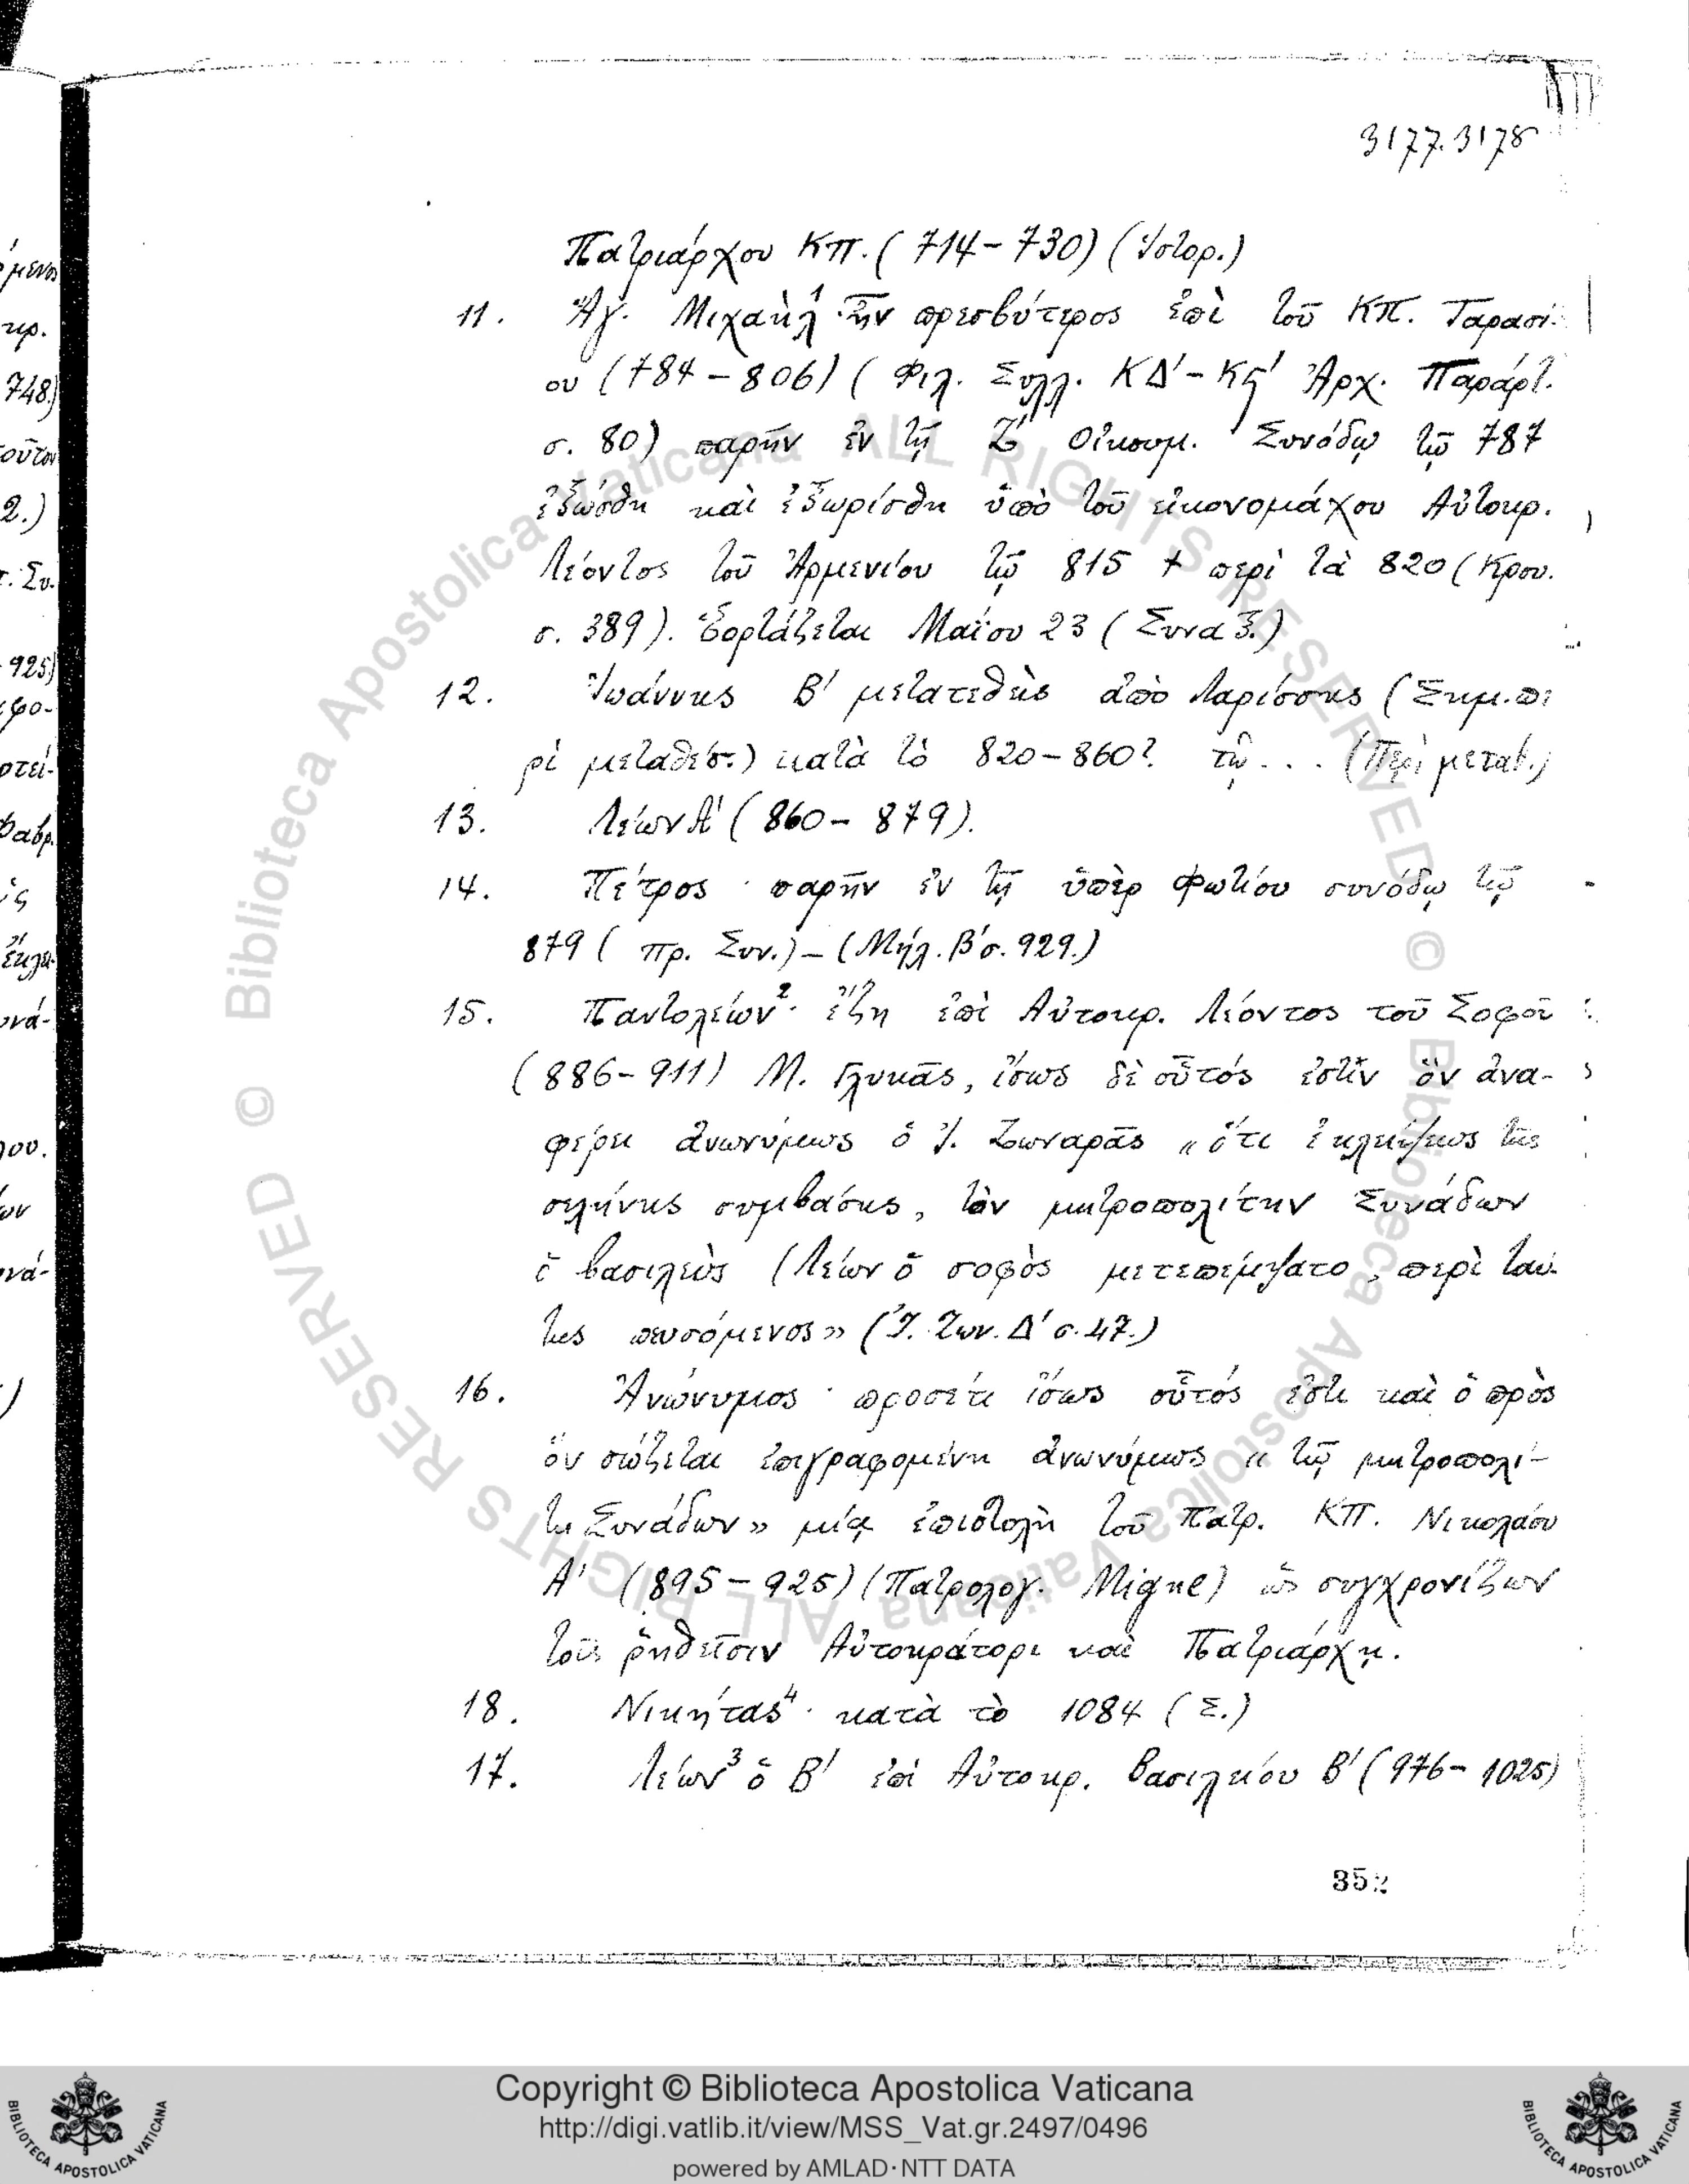 3177.3178
Πατριάρχου ΚΠ. (714-730) (Ἱστορ.)
11. Ἅγ. Μιχαὴλ¹· ἦν πρεσβύτερος ἐπὶ τοῦ ΚΠ. Ταρασί-
ου (784-806) (Φιλ. Συλλ. ΚΔ'-ΚϚ' Ἀρχ. Παράρτ.
σ. 80) παρῆν ἐν τῇ Ζ' Οἰκουμ. Συνόδῳ τῷ 787
ἐξώσθη καὶ ἐξωρίσθη ὑπὸ τοῦ εἰκονομάχου Αὐτοκρ.
Λέοντος τοῦ Ἀρμενίου τῷ 815 + περὶ τὰ 820 (Κρου.
σ. 389). Ἑορτάζεται Μαΐου 23 (Συναξ.)
12. Ἰωάννης Β' μετατεθεὶς ἀπὸ Λαρίσσης (Σημ. πε
ρὶ μεταθέσ.) κατὰ τὸ 820-860? τῷ... (Περὶ μεταθ.)
13. Λέων Α' (860-879).
14. Πέτρος· παρῆν ἐν τῇ ὑπὲρ Φωτίου συνόδῳ τῷ
879 (πρ. Συν.) - (Μήλ. Β' σ. 929.)
15. Παντολέων²· ἔζη ἐπὶ Αὐτοκρ. Λέοντος τοῦ Σοφοῦ
(886-911) Μ. Γλυκᾶς, ἴσως δὲ οὗτός ἐστιν ὃν ἀνα-
φέρει ἀνωνύμως ὁ Ἰ. Ζωναρᾶς «ὅτι ἐκλείψεως τῆς
σελήνης συμβάσης, τὸν μητροπολίτην Συνάδων
ὁ βασιλεὺς (Λέων ὁ σοφὸς μετεπέμψατο, περὶ ταύ-
της πευσόμενος» (Ἰ. Ζων. Δ' σ. 47.)
16. Ἀνώνυμος· προσέτι ἴσως οὗτός ἐστι καὶ ὁ πρὸς
ὃν σώζεται ἐπιγραφομένη ἀνωνύμως «τῷ μητροπολί-
τῃ Συνάδων» μία ἐπιστολὴ τοῦ Πατρ. ΚΠ. Νικολάου
Α' (895-925) (Πατρολογ. Migne) ὡς συγχρονίζων
τοῖς ῥηθεῖσιν Αὐτοκράτορι καὶ Πατριάρχῃ.
18. Νικήτας⁴· κατὰ τὸ 1084 (Σ.)
17. Λέων³ ὁ Β' ἐπὶ Αὐτοκρ. Βασιλείου Β' (976-1025)
352
Copyright © Biblioteca Apostolica Vaticana
http://digi.vatlib.it/view/MSS_Vat.gr.2497/0496
powered by AMLAD·NTT DATA
BIBLIOTECA APOSTOLICA VATICANA
BIBLIOTECA APOSTOLICA VATICANA
© Biblioteca Apostolica Vaticana ALL RIGHTS RESERVED
© Biblioteca Apostolica Vaticana ALL RIGHTS RESERVED